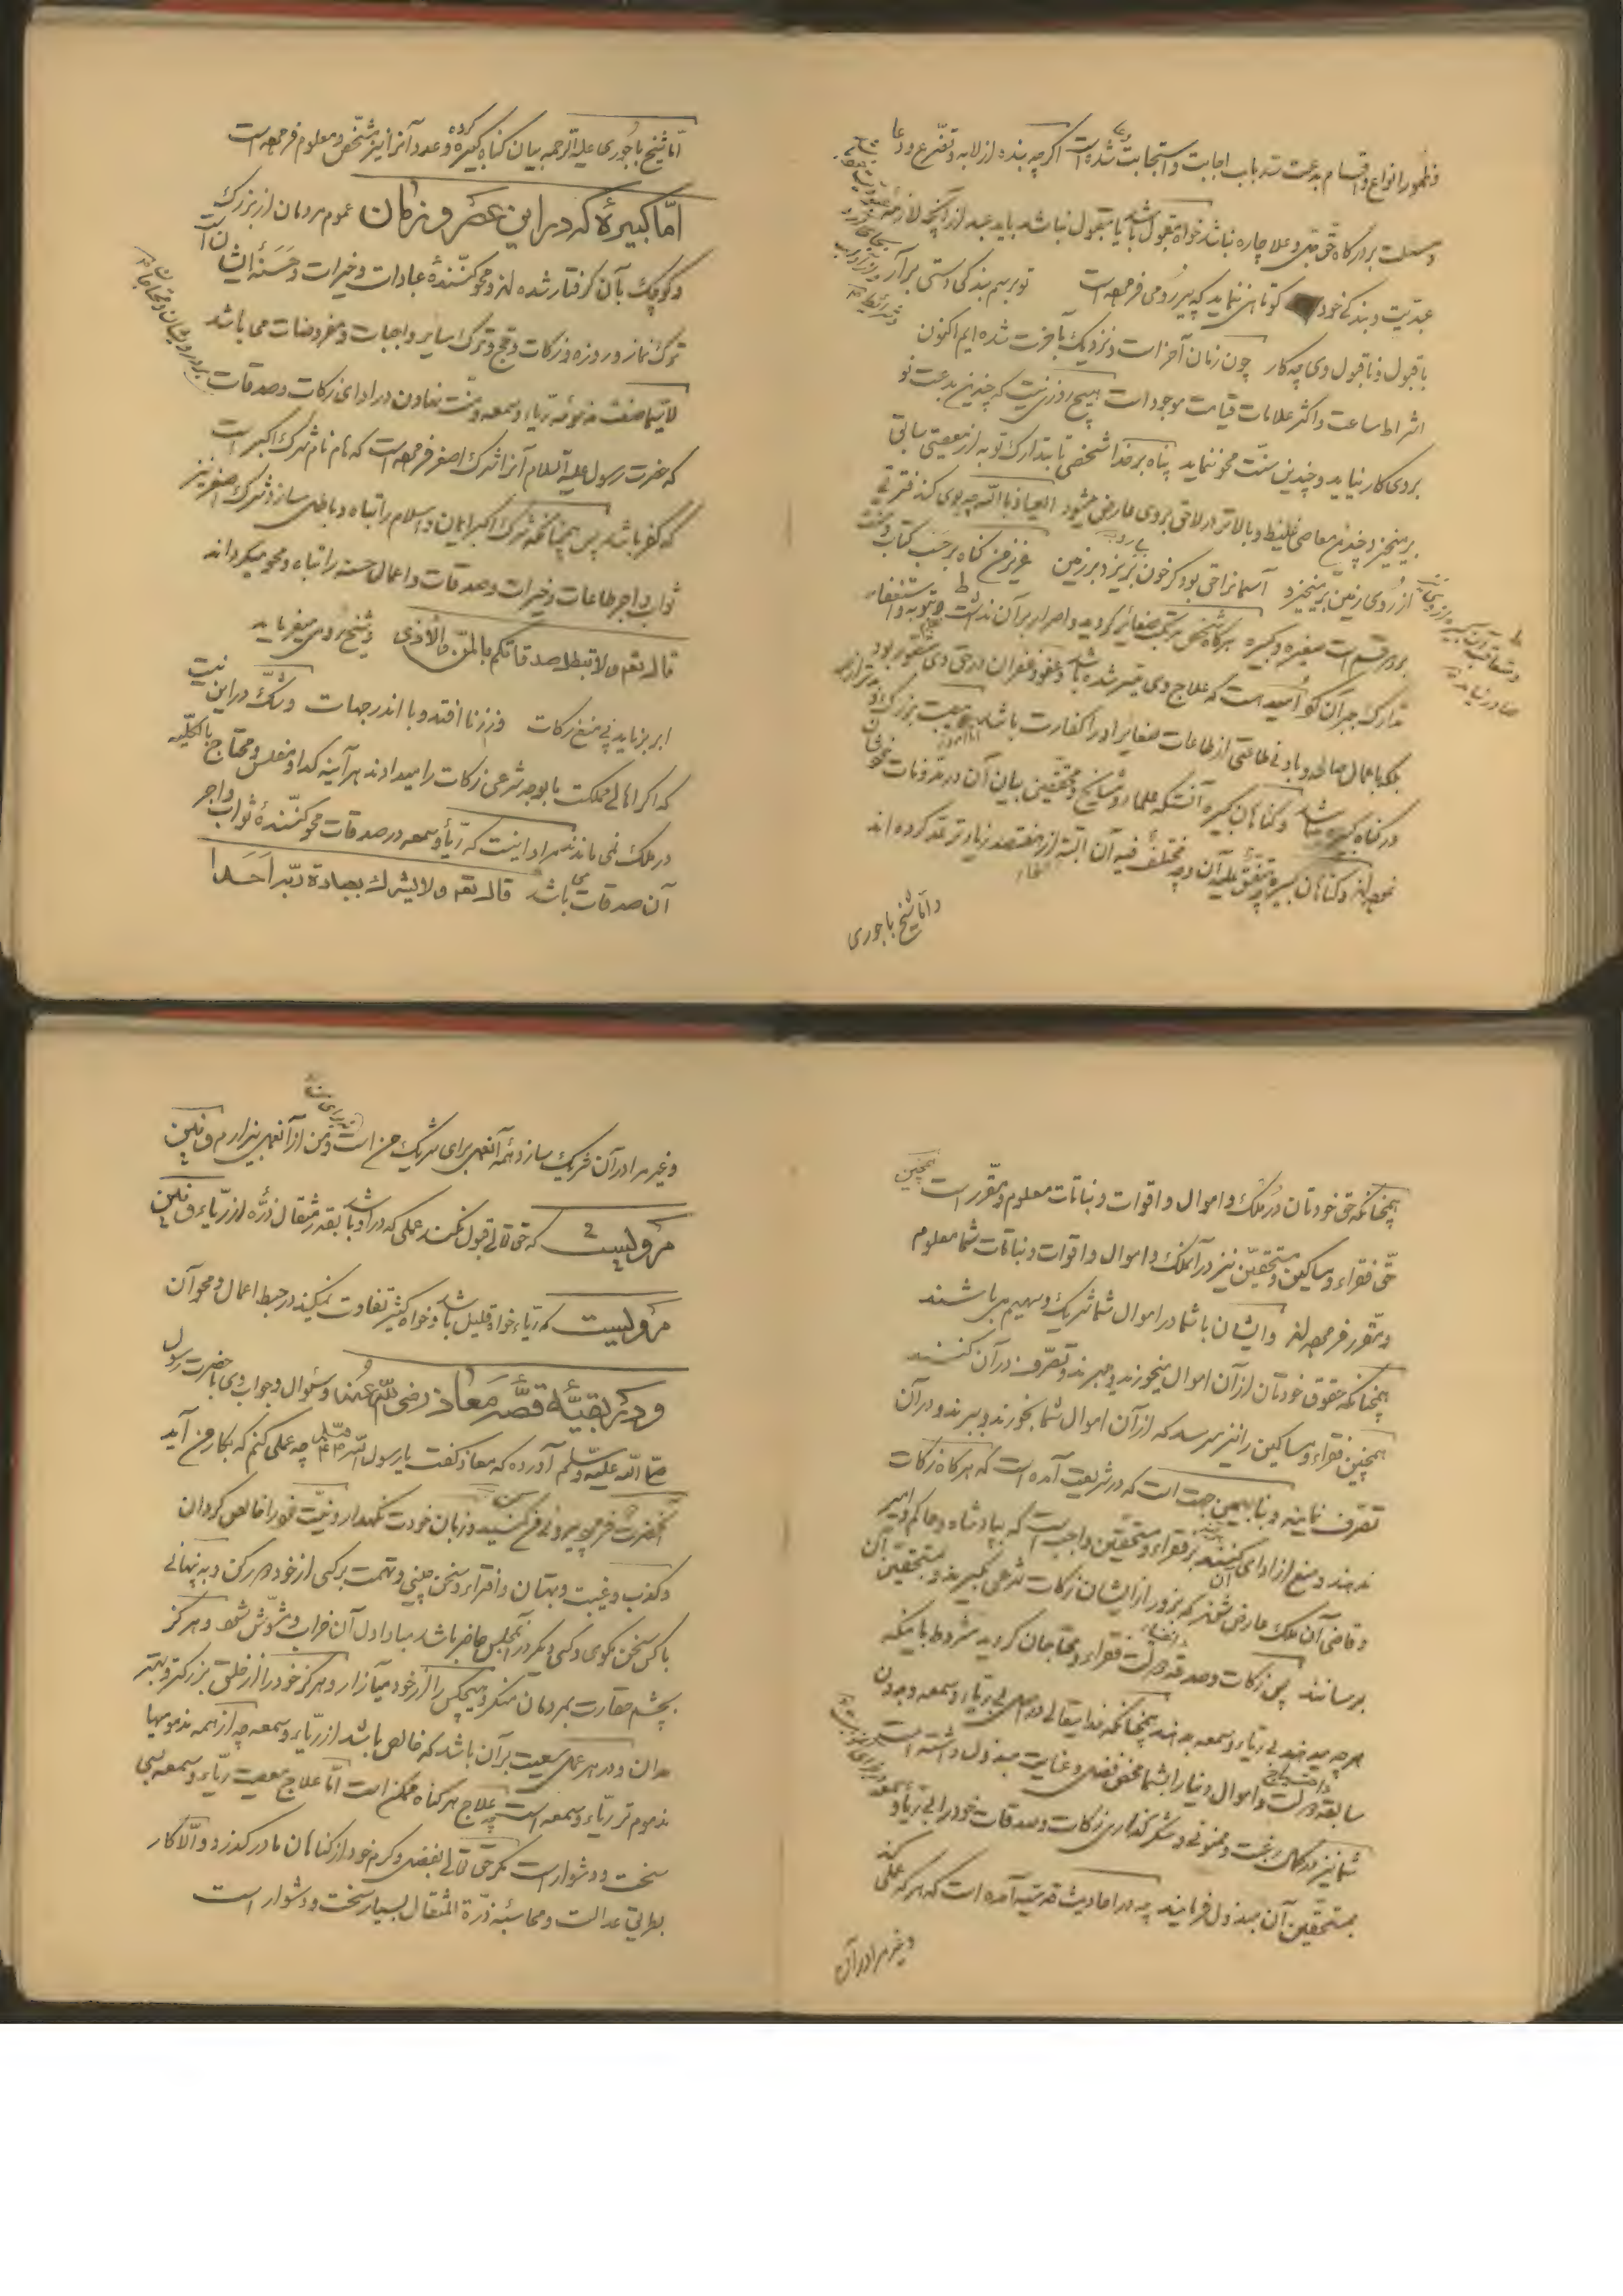 و ظهور انواع و اقسام بدعت سد باب اجابت و استجابت دعا شده است اگر چه بنده از لابه و تضرع و دعا
و مسئلت بدرگاه حق جل و علا چاره نباشد خواه مقبول باشد یا مقبول نباشد باید عبد از آنچه لازمهٔ
عبدیت و بندگی خود کوتاهی ننماید که پیر رومی فرموده است تو برسم بندگی دستی برآر
با قبول و ناقبول وی چه کار چون زمان آخر است و نزدیک بآخرت شده ایم اکنون
اشراط ساعت و اکثر علامات قیامت موجود است هیچ روزی نیست که چندین بدعت نو
بروی کار نیاید و چندین سنت محو ننماید پناه بر خدا شخصی تا بتدارک توبه از معصیتی سابق
برمیخیزد چندین معاصی غلیظ و بالاتر در لاحق بر وی عارض میشود العیاذ بالله چه بوی گند فترتی
از روی زمین برمیخیزد آسمانرا حق بود گر خون بریزد بر زمین عزیز من گناه بر حسب کتاب و سنت
بر دو قسم است صغیره و کبیره هرگاه شخص مرتکب صغائر گردید و اصرار بر آن نداشت و بتوبه و استغفار
تدارک جبران کو امید است که علاج وی میسر شده باشد و عفو و غفران در حق وی متصور بود
بلکه باعمال صالحه و بادنی طاعتی از طاعات صغایر او را کفارت باشد اما امروز مصیبت بزرگ
در گناه کبیره میباشد و گناهان کبیره آنستکه علما و مشایخ و محققین بیان آن در مدونات خودشان
نموده اند و گناهان کبیره چه متفق علیه آن و چه مختلف فیه آن البته از هفتصد زیادتر عد کرده اند
و اما شیخ باجوری
اما شیخ باجوری علیه الرحمه بیان گناه کبیره کرده و عدد آنرا نیز مشخص و معلوم فرموده است
اما کبیرهٔ که در این عصر و زمان عموم مردمان از بزرگ
و کوچک بآن گرفتار شده اند و محو کنندهٔ عبادات و خیرات و حسنهٔ ایشان است
ترک نماز و روزه و زکات و حج و ترک سایر واجبات و مفروضات می باشد
لاسیما صفت مذمومه ریاء و سمعه و منت نهادن در ادای زکات و صدقات
بر درویشان و محتاجان
که حضرت رسول علیه السلام آنرا شرک اصغر فرموده است که نام نام شرک اکبر است
که کفر باشد پس همچنانکه شرک اکبر ایمان و اسلام را تباه و باطل سازد شرک اصغر نیز
ثواب و اجر طاعات و خیرات و صدقات و اعمال حسنه را تباه و محو میگرداند
قال تعه ولا تبطلوا صدقاتکم بالمن والأذی و شیخ رومی میفرماید
ابر برناید پی منع زکات وز زنا افتد وبا اندر جهات و شک در این نیست
که اگر اهالی مملکت بوجه شرعی زکات را میدادند هر آینه گدا و مفلس و محتاج بالکلیه
در ملک نمی ماندند مراد اینست که ریاء و سمعه در صدقات محو کنندهٔ ثواب و اجر
آن صدقات می باشد قال تعه ولا یشرک بعبادة ربه احدا
همچنانکه حق خودتان در ملک و اموال و اقوات و نباتات معلوم و مقرر است همچنین
حق فقراء و مساکین و مستحقین نیز در آنملک و اموال و اقوات و نباتات شما معلوم
و مقرر فرموده اند و ایشان با شما در اموال شما شریک و سهیم می باشند
همچنانکه حقوق خودتان از آن اموال میخورند و میبرند و تصرف در آن کنند
همچنین فقراء و مساکین را نیز میرسد که از آن اموال شما بخورند و ببرند و در آن
تصرف نمایند و بنا بهمین جهت است که در شریعت آمده است که هرگاه زکات
ندهند و منع از ادای آن کنند بر فقراء و مستحقین واجب است که بپادشاه و حاکم و امیر
و قاضی آن ملک عارض شوند که بزور از ایشان زکات شرعی بگیرند و بمستحقین آن
برسانند پس زکات و صدقه دولت فقراء و محتاجان گردید مشروط باینکه
هر چه میدهید بی ریاء و سمعه بدهید همچنانکه خدایتعالی در اصل بی ریاء و سمعه و بدون
سابقه دولت و اموال دنیا را بشما محض فضل و عنایت مبذول داشته است
شما نیز در کمال رغبت و ممنونی و شکر گذاری زکات و صدقات خود را بی ریاء و سمعه
بمستحقین آن مبذول فرمایید چه در احادیث قدسیه آمده است که هر که عملی کند
و غیر مرا در آن
و غیر مرا در آن شریک سازد همه آنعمل برای شریک من است و من از آنعمل بیزارم
مرویست که حق تعالی قبول نکند عملی که در او باشد بقدر مثقال ذره از ریاء
مرویست که ریاء خواه قلیل باشد و خواه کثیر تفاوت نمیکند در حبط اعمال و محو آن
و در بقیهٔ قصهٔ معاذ رضی الله عنه و سئوال و جواب وی با حضرت رسول
صلی الله علیه وسلم آورده که معاذ گفت یا رسول الله چه عملی کنم که بکار من آید
آنحضرت فرمود پیروی من کنید و زبان خودت نگهدار و نیت خود را خالص گردان
و کذب و غیبت و بهتان و افتراء و سخن چینی و تهمت بر کسی از خود دور کن و به پنهانی
با کس سخن مگوی و کسی دیگر در آنمجلس حاضر باشد مبادا دل آن خراب و مشوش شود و هرگز
بچشم حقارت بمردمان منگر و هیچکس را از خود میازار و هرگز خود را از خلق بزرگتر و بهتر
مدان و در هر عمل سعیت بر آن باشد که خالص باشد از ریاء و سمعه چه از همه مذمومها
مذموم تر ریاء و سمعه است چه علاج هر گناه ممکن است اما علاج معصیت ریاء و سمعه بسی
سخت و دشوار است مگر حق تعالی بفضل و کرم خود از گناهان ما در گذرد و الا کار
بطریق عدالت و محاسبه ذرة المثقال بسیار سخت و دشوار است